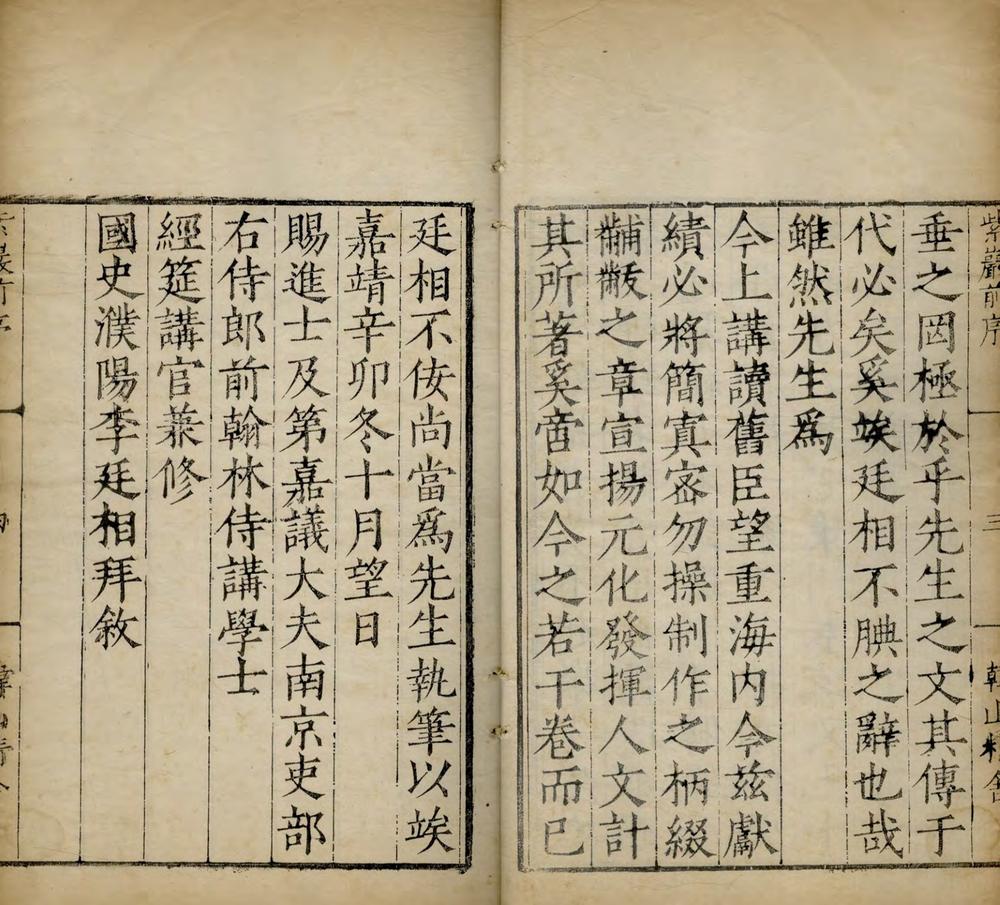 紫巖前序
三
韓山精舍
垂之罔極於乎先生之文其傳于
代必矣奚竢廷相不腆之辭也哉
雖然先生爲
今上講讀舊臣望重海内今兹獻
績必將簡寘宻勿操制作之柄綴
黼黻之章宣揚元化發揮人文計
其所著奚啻如今之若干卷而已
廷相不佞尚當爲先生執筆以竢
嘉靖辛卯冬十月望日
賜進士及第嘉議大夫南京吏部
右侍郎前翰林侍講學士
經筵講官兼修
國史濮陽李廷相拜敘